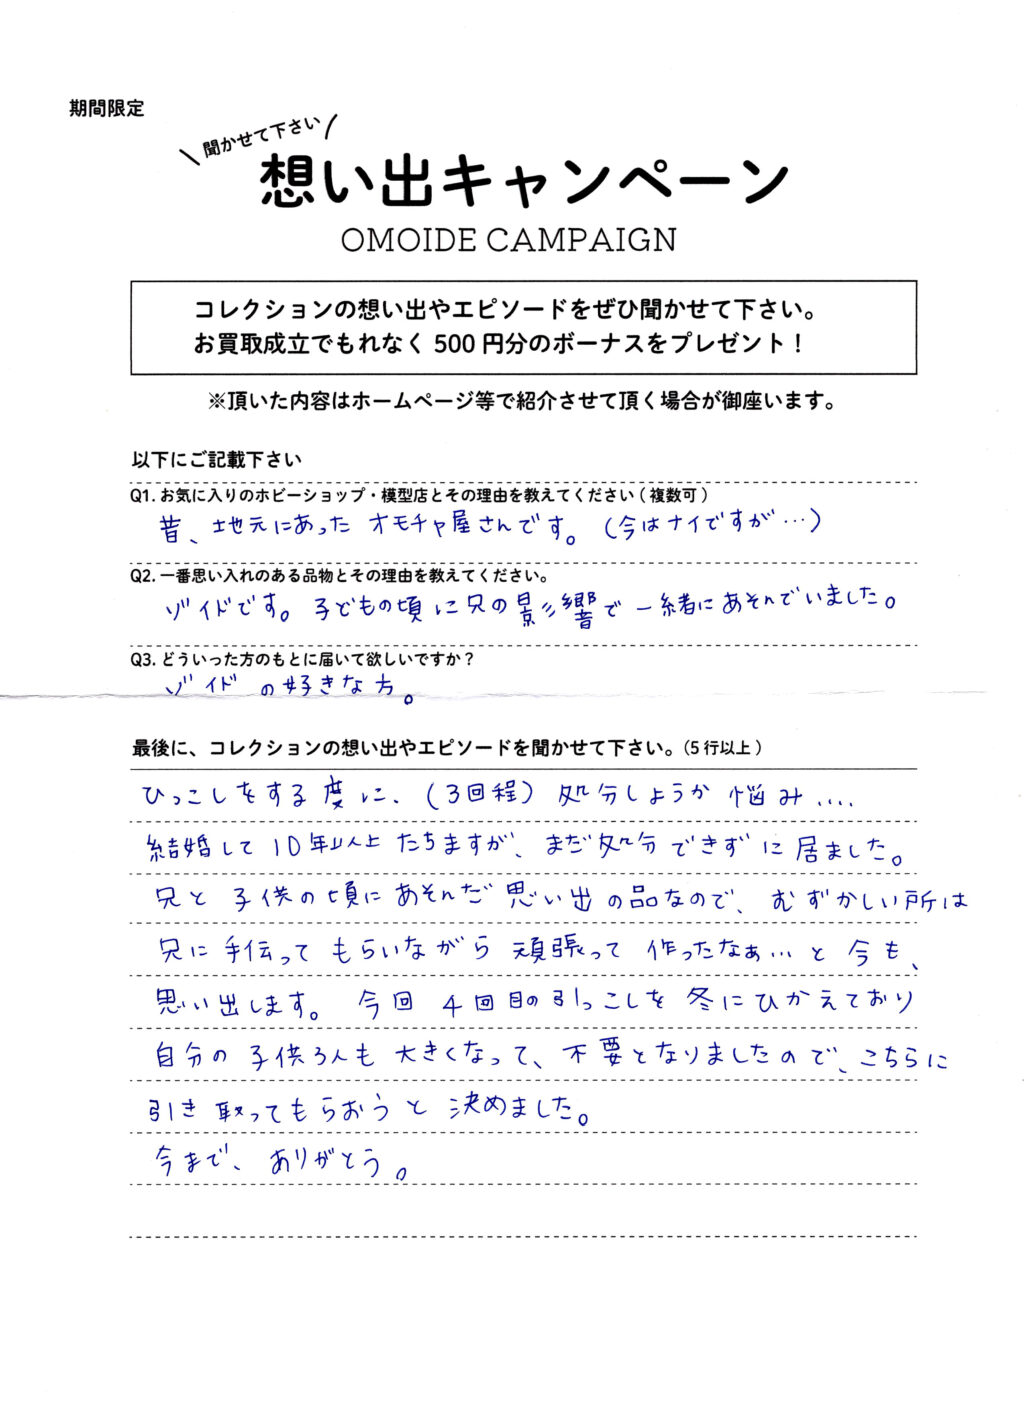 期間限定
聞かせて下さい
想い出キャンペーン
OMOIDE CAMPAIGN
コレクションの想い出やエピソードをぜひ聞かせて下さい。
お買取成立でもれなく 500 円分のボーナスをプレゼント！
※頂いた内容はホームページ等で紹介させて頂く場合が御座います。
以下にご記載下さい
Q1. お気に入りのホビーショップ・模型店とその理由を教えてください ( 複数可 )
昔、地元にあった オモチャ屋さんです。（今はナイですが…）
Q2. 一番思い入れのある品物とその理由を教えてください。
ゾイドです。子どもの頃に兄の影響で一緒にあそんでいました。
Q3. どういった方のもとに届いて欲しいですか？
ゾイドの好きな方。
最後に、コレクションの想い出やエピソードを聞かせて下さい。（5 行以上 ）
ひっこしをする度に、（3回程）処分しようか 悩み....
結婚して 10年以上 たちますが、まだ処分できずに居ました。
兄と 子供の頃にあそんだ 思い出の品なので、むずかしい所は
兄に手伝って もらいながら 頑張って 作ったなぁ…と 今も、
思い出します。 今回 4回目の引っこしを 冬にひかえており
自分の 子供3人も 大きくなって、不要となりましたので、こちらに
引き取ってもらおうと 決めました。
今まで、ありがとう。